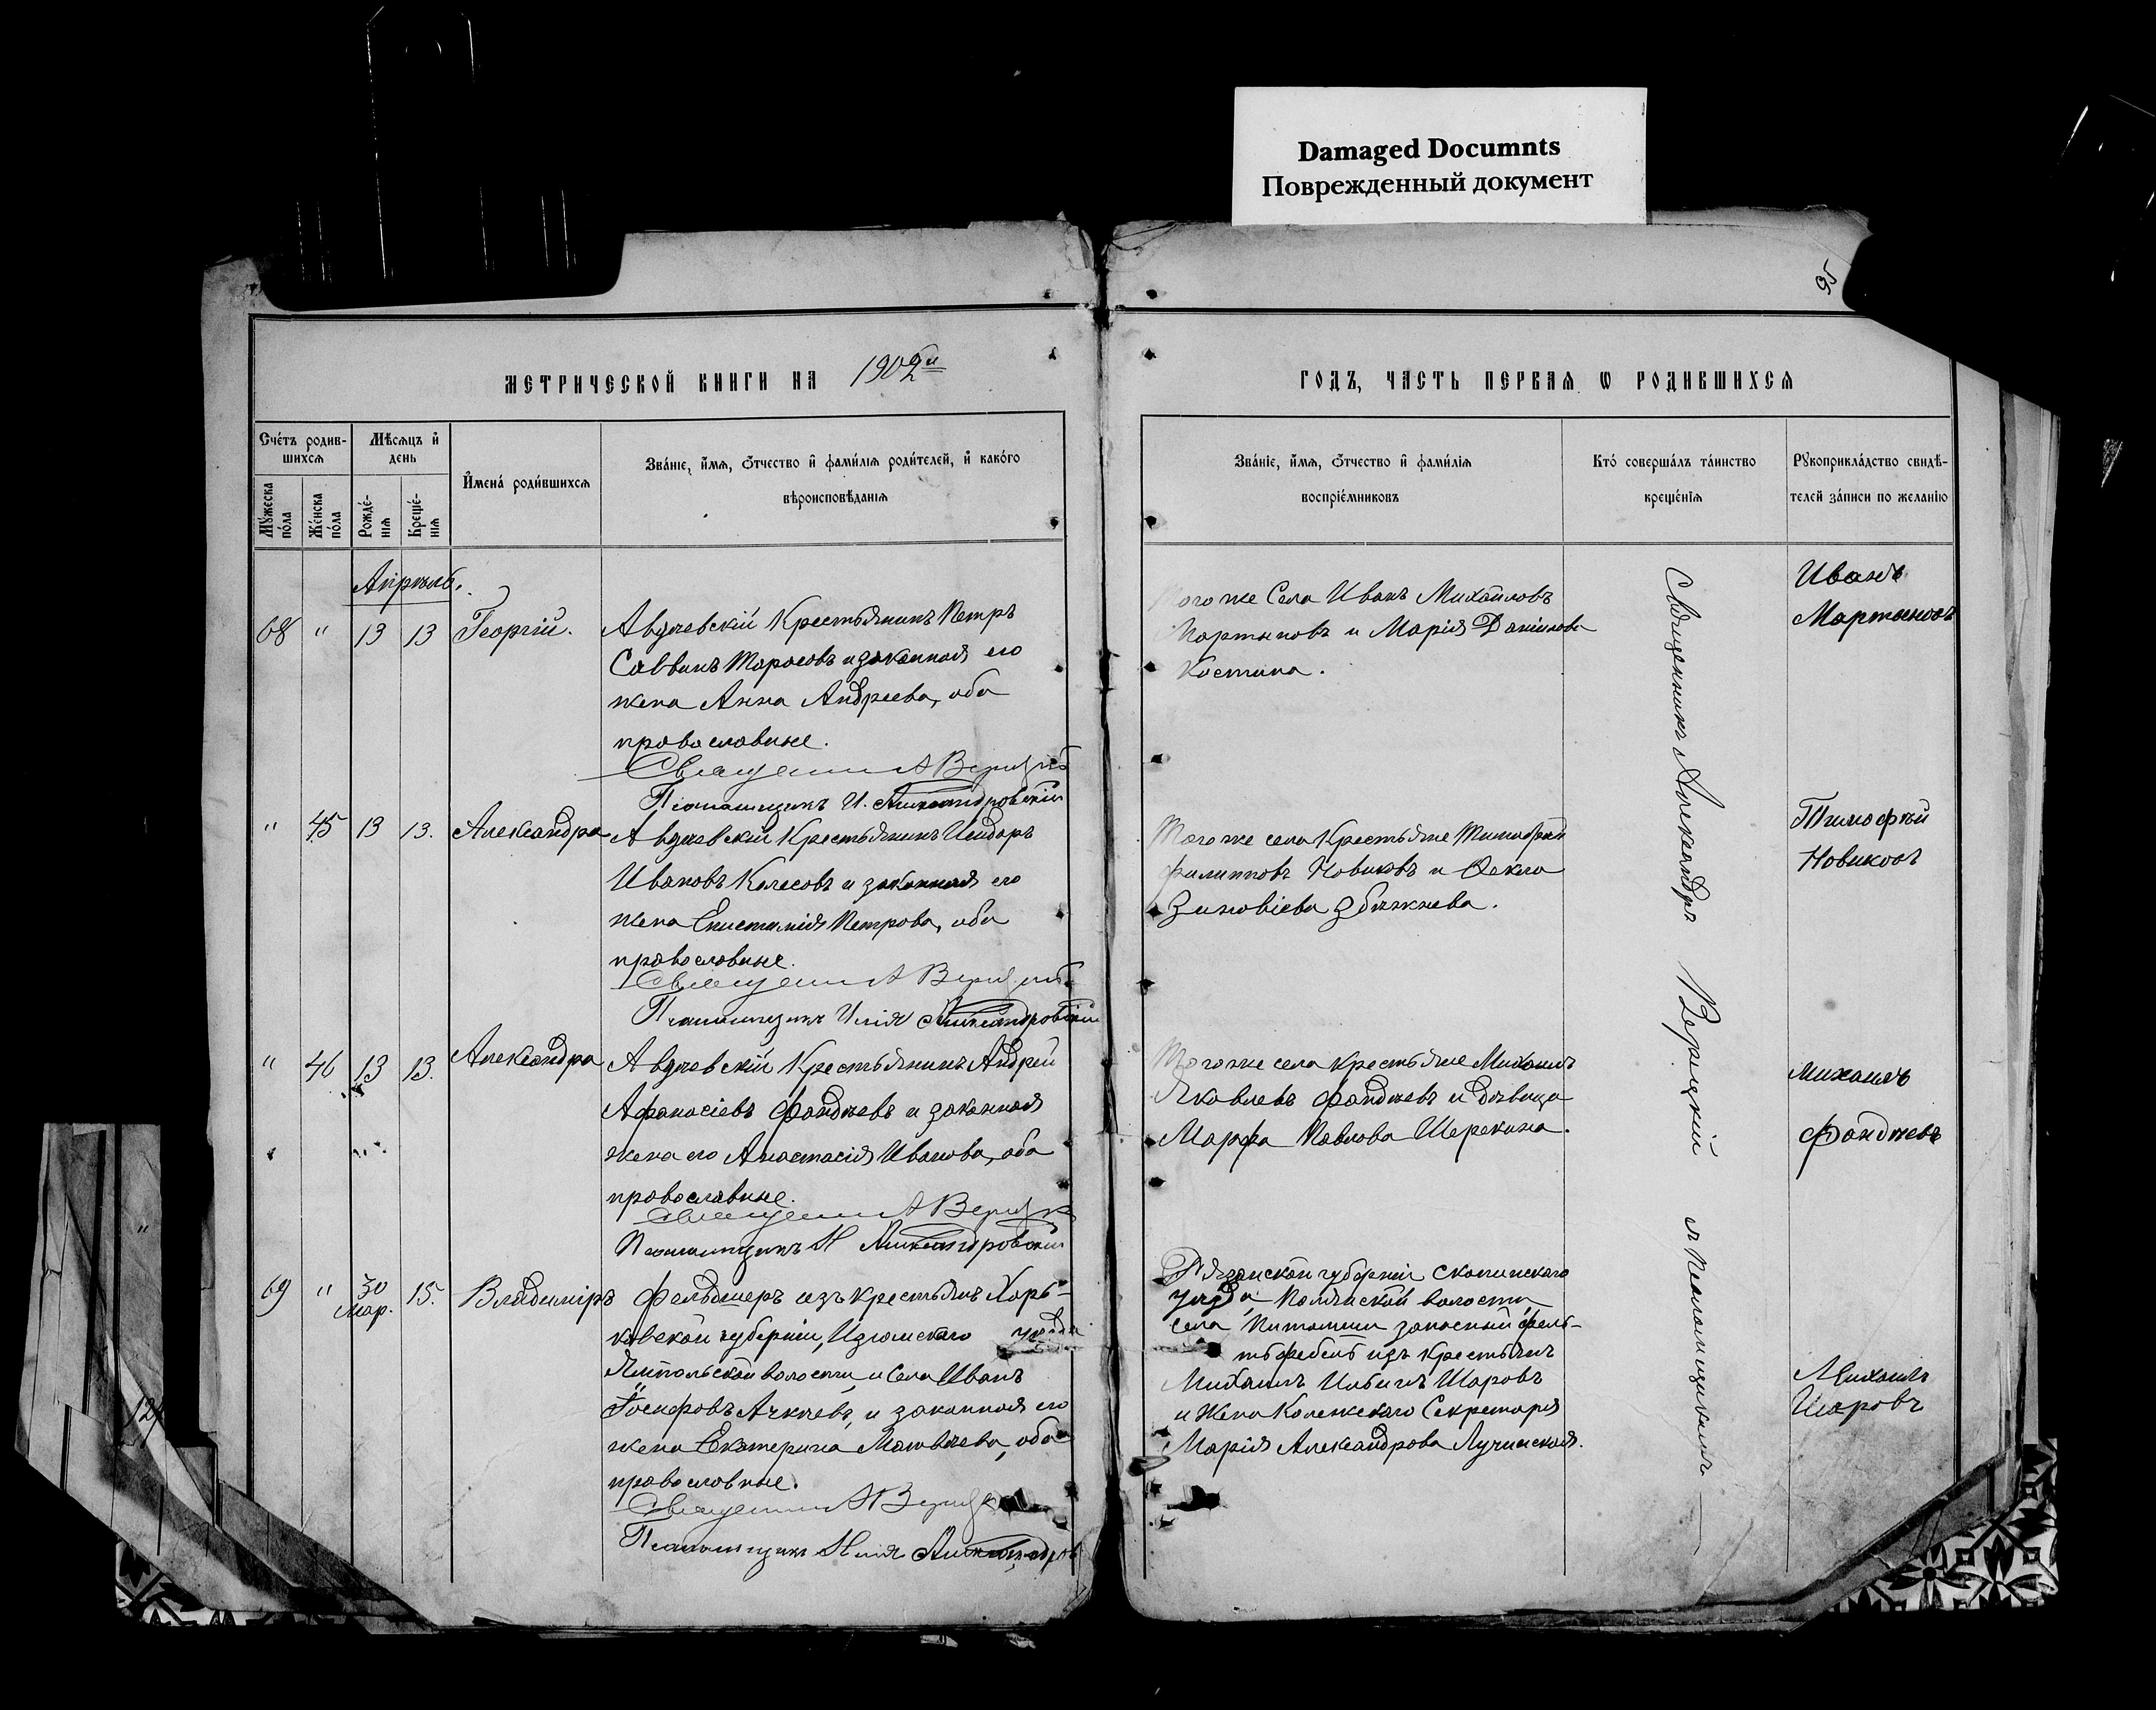 Damaged Documnts
Поврежденный документ
95
МЕТРИЧЕСКОЙ КНИГИ НА 1902й
ГОДЪ, ЧАСТЬ ПЕРВАѦ Ѡ РОДИВШИХСѦ
Сче́тъ родив-
шихсѧ
Мѣсѧцъ и҆
день
Мꙋ́жеска
по́ла
Же́нска
по́ла
Рожде́-
нїѧ
Креще́-
нїѧ
И҆мена́ роди́вшихсѧ
Зва́нїе, и҆́мѧ, ѻ҆́тчество и҆ фами́лїѧ роди́телей, и҆ како́гѡ
вѣроисповѣ́данїѧ
Зва́нїе, и҆́мѧ, ѻ҆́тчество и҆ фами́лїѧ
воспрїе́мниковъ
Кто̀ соверша́лъ та́инство
креще́нїѧ
Рꙋкоприкла́дство свидѣ́-
телей за́писи по жела́нїю
Апрѣль.
68 " 13 13 Георгій.
Авдѣевскій Крестьянинъ Петръ
Саввинъ Тарасовъ и законная его
жена Анна Андреева, оба
православные.
Священникъ А Верецкій
Псаломщикъ И. Александровскій
того же Села Иванъ Михайловъ
Мартыновъ и Марія Данилова
Костина.
Иванъ
Мартыновъ
" 45 13 13. Александра
Авдѣевскій Крестьянинъ Исидоръ
Ивановъ Колесовъ и законная его
жена Епистимія Петрова, оба
православные.
Священникъ А Верецкій
Псаломщикъ Илія Александровскій
Того же села Крестьяне Тимофей
Филипповъ Новиковъ и Ѳекла
Зиновіева
Тимофѣй
Новиковъ
" 46 13 13. Александра
Авдѣевскій Крестьянинъ Андрей
Афанасіевъ Фандѣевъ и законная
жена его Анастасія Иванова, оба
православные.
Священникъ А Верецкій
Псаломщикъ И Александровскій
Того же села крестьяне Михаилъ
Яковлевъ Фандѣевъ и дѣвица
Марфа Павлова Шерекина.
Михаилъ
Фандѣевъ
69 " 30 Мар. 15. Владиміръ
Фельдшеръ изъ крестьянъ Харь-
ковской губерніи, Изюмскаго уѣзда
волости и Села Иванъ
Іосифовъ и законная его
жена Екатерина Матвѣева, оба
православные.
Священникъ А Верецкій
Псаломщикъ Илія Александров
Рязанской губерніи Скопинскаго
уѣзда волости
села запасный фель-
изъ крестьянъ
Михаилъ Шаровъ
и Жена Колежскаго Секретаря
Марія Александрова Лучинская.
Михаилъ
Шаровъ
Священникъ Александръ Верецкій съ Псаломщикомъ